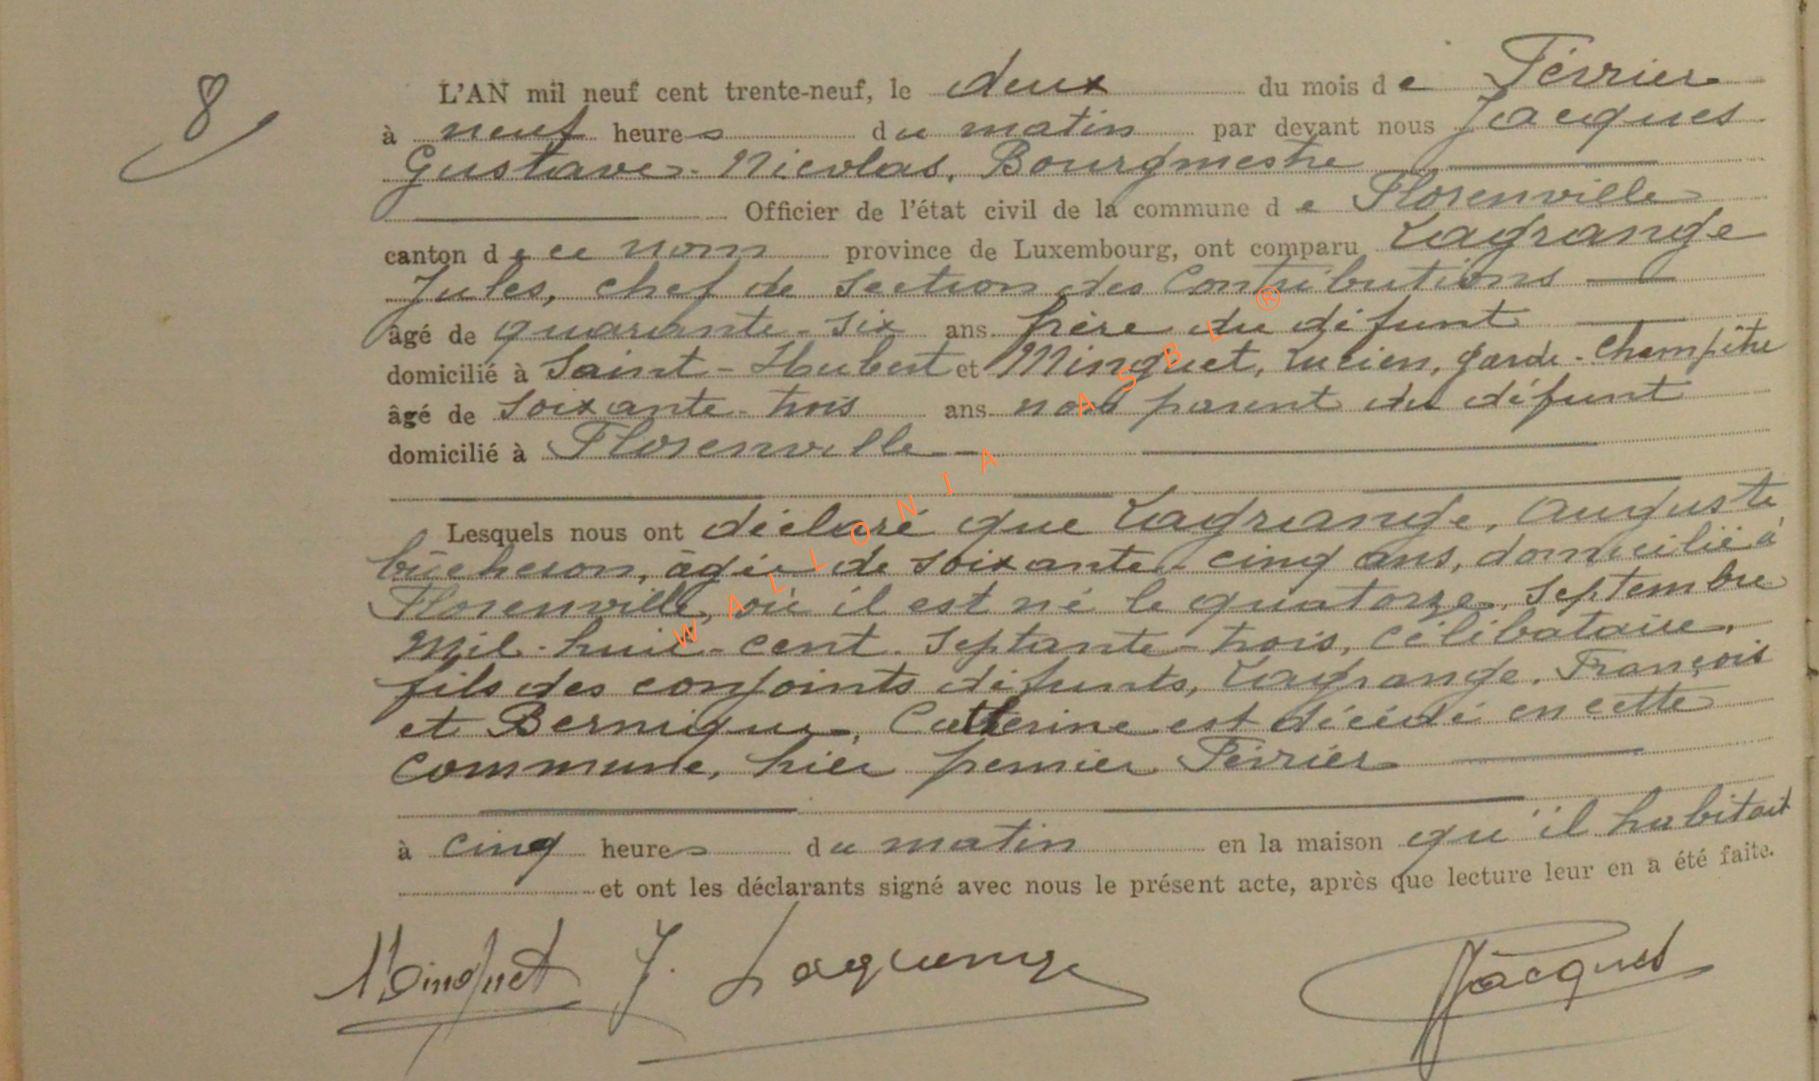 8
L'AN mil neuf cent trente-neuf, le deux du mois de Février
à neuf heures du matin par devant nous Jacques
Gustave-Nicolas, Bourgmestre
Officier de l'état civil de la commune de Florenville
canton de ce nom province de Luxembourg, ont comparu Lagrange
Jules, chef de Section des Contributions
âgé de quarante-six ans frère du défunt
domicilié à Saint-Hubert et Minguet, Lucien, garde-Champêtre
âgé de soixante-trois ans non parent du défunt
domicilié à Florenville
Lesquels nous ont déclaré que Lagrange, Auguste
bûcheron, âgé de soixante-cinq ans, domicilié à
Florenville, où il est né le quatorze Septembre
Mil-huit-cent-Septante-trois, célibataire,
fils des conjoints défunts, Lagrange, François
et Bernique, Catherine est décédé en cette
commune, hier premier Février
à cinq heures du matin en la maison qu'il habitait
et ont les déclarants signé avec nous le présent acte, après que lecture leur en a été faite.
Minguet J. Lagrange Jacques
WALLONIA ASBL ®